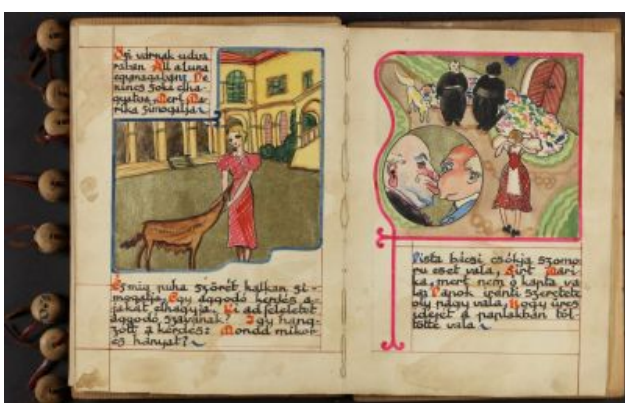 Ősi várnak udva
rában Áll a tuna
egymagában De
nincs soká elha
gyatva, Mert Ma
rika simogatja
És míg puha szőrét halkan si-
mogatja, Egy aggódó kérdés a-
jakát elhagyja. Ki ad feleletet
aggódó szavának? Így hang-
zott a kérdés: Mondd mikor
és hányat?
Pista bácsi csókja szomo
rú eset vala, Sírt Mari
ka, mert nem ő kapta va
la Papok iránti szeretete
oly nagy vala, Hogy üres
idejét a paplakban töl-
tötte vala